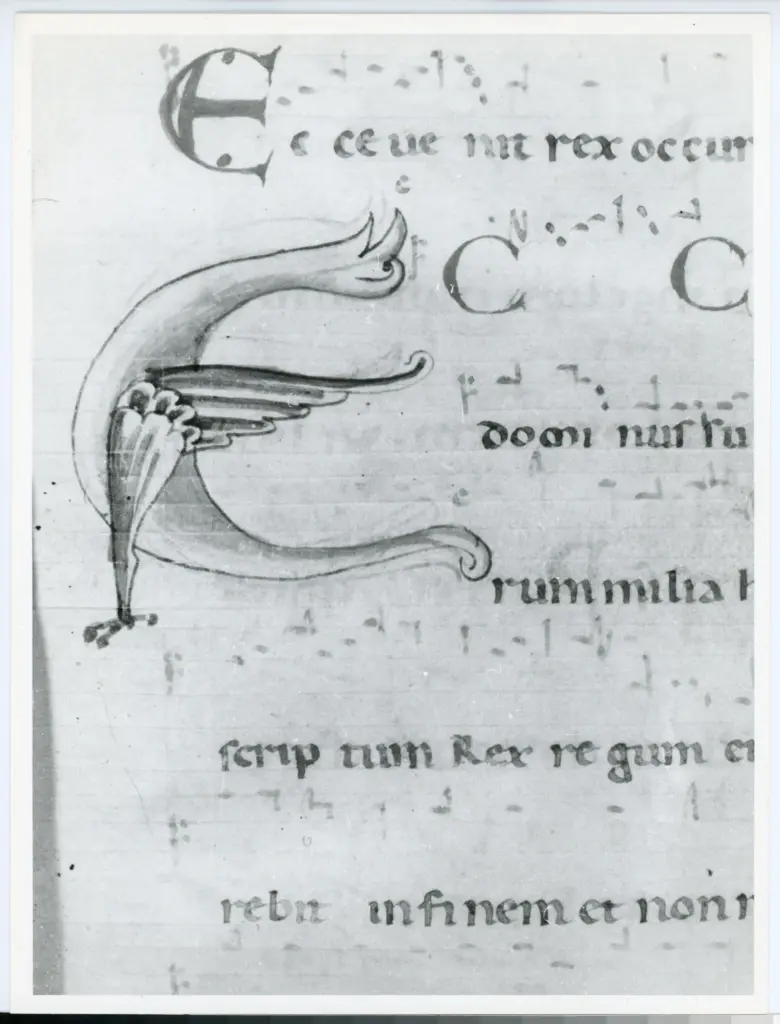 Ec ce ue nit rex occur
E C C
domi nus su
rum milia h
scrip tum Rex re gum et
rebit in finem et non r